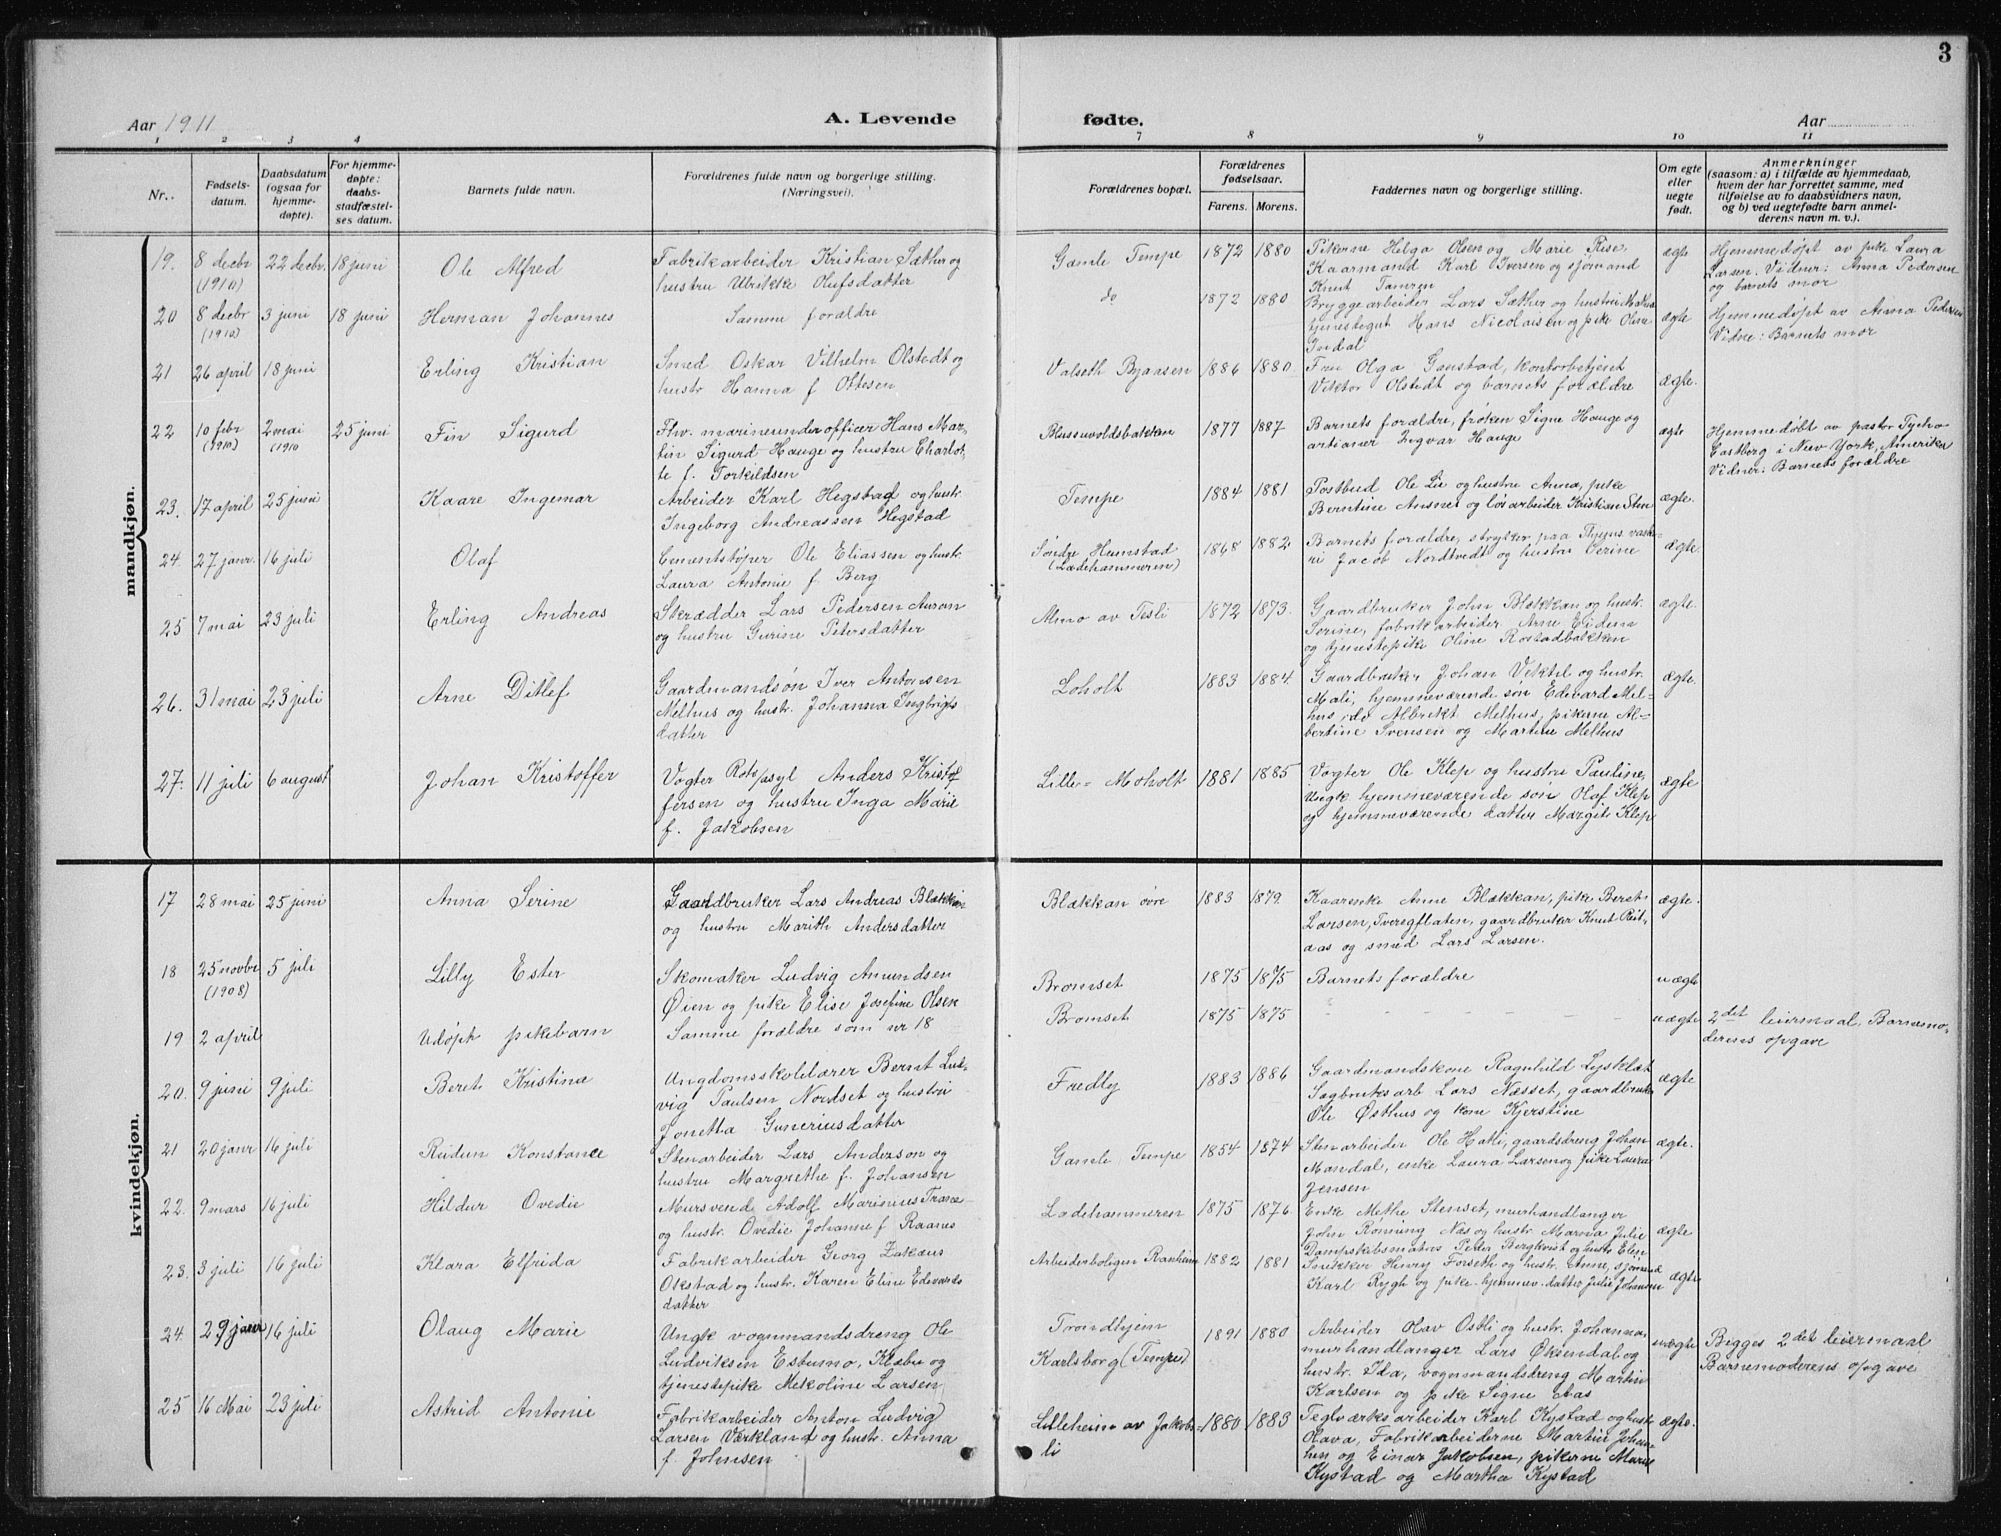 3
Aar 1911
A. Levende
fødte.
Aar
1 2 3 4 7 8 9 10 11
Nr.
Fødsels-
datum.
Daabsdatum
(ogsaa for
hjemme-
døpte).
For hjemme-
døpte:
daabs-
stadfæstel-
ses datum.
Barnets fulde navn.
Forældrenes fulde navn og borgerlige stilling.
(Næringsvei).
Forældrenes bopæl.
Forældrenes
fødselsaar.
Farens. Morens.
Faddernes navn og borgerlige stilling.
Om egte
eller
uegte
født.
Anmerkninger
(saasom: a) i tilfælde av hjemmedaab,
hvem der har forrettet samme, med
tilføielse av to daabsvidners navn,
og b) ved uegtefødte barn anmel-
derens navn m. v.).
mandkjøn.
19. 8 decbr 22 decbr. 18 juni Ole Alfred Fabrikarbeider Kristian Sæther og Gamle Tempe 1872 1880 Pikerne Helga Olsen og Marie Rise, ægte Hjemmedøpt av pike Laura
(1910) hustru Ulrikke Olufsdatter Kaarmand Karl Iversen og sjømand Larsen. Vidner: Anna Pedersen
Knut Tamren og barnets mor
20 8 decbr 3 juni 18 juni Herman Johannes Samme forældre do 1872 1880 Bryggearbeider Lars Sæther og hustru ægte Hjemmedøpt av Anna Pedersen
(1910) tjenestegut Hans Nicolaisen og pike Oline Vidne: Barnets mor
Indal
21 26 april 18 juni Erling Kristian Smed Oskar Vilhelm Olstedt og Valseth Byaasen 1886 1880. Fru Olga Ganstad, kontorbetjent
hustr Hanna f Ottesen Vektor Olstedt og barnets forældre ægte.
22 10 febr 2 mai 25 juni Fin Sigurd Fhv. marineunderofficer Hans Mar, Blussuvoldsbakken 1877 1887 Barnets forældre, frøken Signe Hauge og ægte Hjemmedøbt av pastor Tycho
(1910) (1910 tin Sigurd Hauge og hustru Charlot- artianer Ingvar Hauge Castberg i New York, Amerika
te f. Torkildsen Vidner: Barnets forældre
23. 17 april 25 juni Kaare Ingemar Arbeider Karl Hegstad og hustr. Tempe 1884 1881 Postbud Ole Lie og hustru Anna, pike
Ingeborg Andreassen Hegstad Berntine Ansnes og løsarbeider Kristian Sten ægte.
24. 27 janr. 16 juli Olaf Cementstøper Ole Eliassen og hustr. Søndre Humstad 1868 1882 Barnets forældre, stryker paa Thjems vaske- ægte.
Laura Antonie f. Berg (Ladehammeren) ri Jacob Nordtvedt og hustru Serine
25 7 mai 23 juli Erling Andreas Skrædder Lars Pedersen Auron Almo av Tesli 1872 1873. Gaardbruker John Blækkan og hustr. ægte.
og hustru Gurine Petersdatter Serine, fabrikarbeider Arne Eidem
og tjenestepike Oline Rostadbakken
26. 31 mai 23 juli Arne Ditlef Gaardmandsøn Iver Antonsen Loholt 1883 1884. Gaardbruker Johan Vektil og hustr. ægte.
Melhus og hustr. Johanna Ingbrigts Mali, hjemmeværende søn Edevard Mel-
datter hus, do Albrekt Melhus, pikerne Al-
bertine Svensen og Martine Melhus
27. 11 juli 6 august Johan Kristoffer Vogter Rotvolsyl Anders Kristof Lille-Moholt 1881 1885 Vogter Ole Klep og hustru Pauline, ægte
fersen og hustru Inga Marie Ungk hjemmeværende søn Olaf Klep
f. Jakobsen og hjemmeværende datter Margit Klep
kvindekjøn.
17 28 mai 25 juni Anna Serine Gaardbruker Lars Andreas Blækkan Blækkan øvre 1883 1879. Kaarenke Anne Blækkan, pike Beret ægte.
og hustru Marith Andersdatter Larsen, Tveregflaten, gaardbruker Knut Reit-
aas og smed Lars Larsen.
18 25 novbr 5 juli Lilly Ester Skomaker Ludvig Amundsen Bromset 1875 1875 Barnets forældre uægte
(1908) Øien og pike Elise Josefine Olsen
19 2 april Udøpt pikebarn Samme forældre som nr 18 Bromset 1875 1875 - - - - uægte 2det leiermaal, Barnemo-
derens opgave
20. 9 juni 9 juli Beret Kristina Ungdomsskolelærer Bernt Lud- Fredly 1883 1886 Gaardmandskone Ragnhild Lysklæt ægte
vig Paulsen Nordset og hustru Sagbruksarb Lars Næsset, gaardbruker
Jonetta Guneriusdatter Ole Østhus og kone Kjerstine
21 20 janr 16 juli Reidun Konstance Stenarbeider Lars Anderson og Gamle Tempe 1854 1874 Stenarbeider Ole Hatli, gaardsdreng Johan ægte.
hustru Margrethe f. Johansen Mandal, enke Laura Larsen og pike Laura
Jensen
22. 9 mars 16 juli Hildur Ovedie Mursvend Adolf Marinius Ladehammeren 1875 1876. Enke Methe Stenset, murhandlanger
og hustr. Ovedie Johanne f Raanes John Rønning Næs og hustr. Marna Julie ægte
23. 3 juli 16 juli Klara Elfrida Fabrikarbeider Georg Zakæus Arbeiderboligen Ranheim 1882 1881 Dampskibsmatros Peter Bergkvist og hustr. Elen
Okstad og hustr. Karen Eline Edvards Snekker Henry Forseth og hustr. Anne, sjømand
datter Karl Rygh og pike hjemmev. datter Julie Johansen ægte
24. 29 janr 16 juli Olaug Marie Ungk vognmandsdreng Ole Trondhjem 1891 1880 Arbeider Olav Ostli og hustr. Johanna, uægte Bigges 2det leiermaal
Ludviksen Estumo, Klæbu og Karlsborg (Tempe) murhandlanger Lars Øksendal og Barnemoderens opgave
tjenestepike Mekoline Larsen hustr. Ida, vognmandsdreng Martin
Karlsen og pike Signe Aas
25 16 Mai 23 juli Astrid Antonie Fabrikarbeider Anton Ludvig Lilleheim av Jakobs- 1880 1883 Teglværksarbeider Karl Kystad og hustr. ægte.
Larsen Værkland og hustr. Anna li Olava, Fabrikarbeiderne Martin Johan-
f. Johnsen hn og Einar Jakobsen, pikerne Marie
Kystad og Martha Kystad